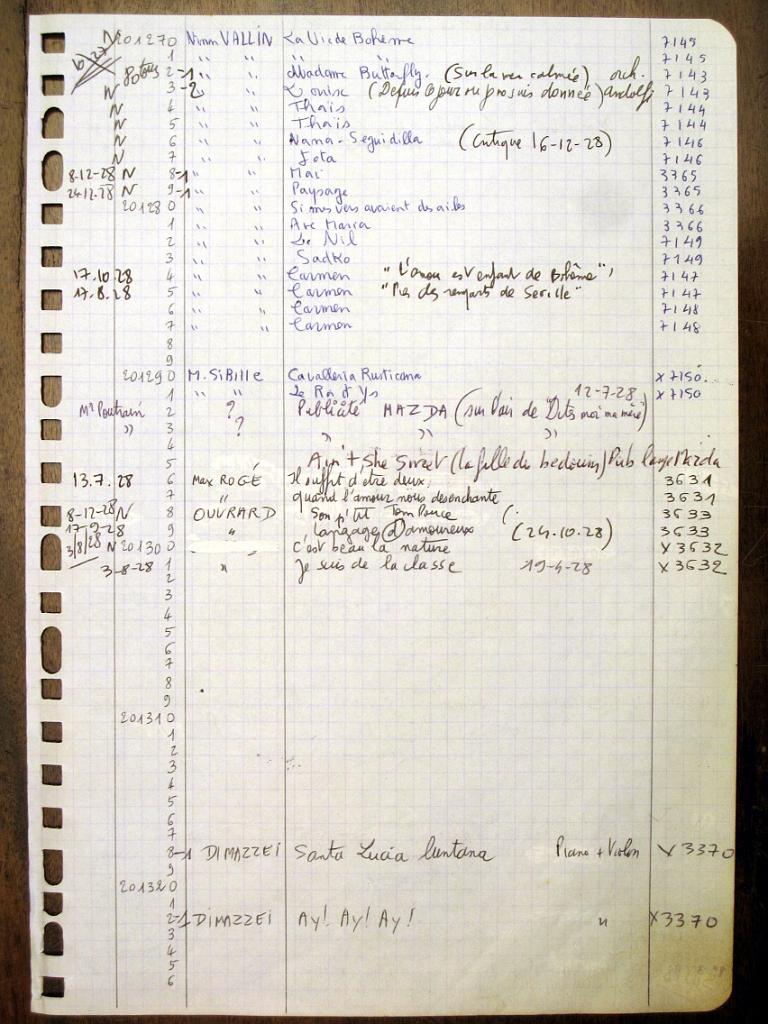 N 201270 Ninon VALLIN La Vie de Bohème 7145
1 " " " 7145
80 tous 2-1 " " Madame Butterfly. (Sur la mer calmée) orch. 7143
3-2 " " Louise (Depuis le jour où je me suis donnée) andolfi 7143
N 4 " " Thaïs 7144
N 5 " " Thaïs 7144
N 6 " " Nana - Seguidilla (Critique 16-12-28) 7146
N 7 " " Jota 7146
8-12-28 N 8-1 " " Mai 3365
24.12.28 N 9-1 " " Paysage 3365
201280 " " Si mes vers avaient des ailes 3366
1 " " Ave Maria 3366
2 " " Le Nil 7149
3 " " Sadko 7149
17.10.28 4 " " Carmen "L'amour est enfant de Bohême", 7147
17.8.28 5 " " Carmen "Près des remparts de Séville" 7147
6 " " Carmen 7148
7 " " Carmen 7148
8
9
201290 M. SiBille Cavalleria Rusticana X 7150.
1 " " Le Roi d'Ys 12-7-28 X 7150
2 ? Publicité MAZDA (sur l'air de "Dites moi ma mère")
" 3 ? " " "
4
5 Ain't She Sweet (la fille du bedouin) Pub lampe Mazda
13.7.28 6 Max ROGÉ Il suffit d'être deux. 3631
7 " quand l'amour nous desenchante 3631
8-12-28 N 8 OUVRARD Son p'tit Tom Pouce (. 3633
17-9-28 9 " langage d'amoureux (24.10.28) 3633
3/8/28 N 201300 c'est beau la nature X 3632
3-8-28 1 " Je suis de la classe 19-4-28 X 3632
2
3
4
5
6
7
8
9
201310
1
2
3
4
5
6
7
8-1 DIMAZZEI Santa Lucia luntana Piano + Violon X 3370
9
201320
1
2-1 DIMAZZEI Ay! Ay! Ay! " X 3370
3
4
5
6